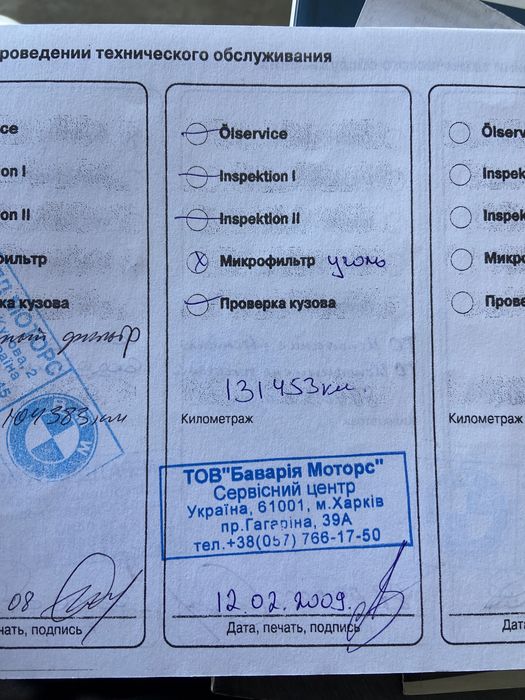 роведении технического обслуживания
ce
on I
on II
льтр
ка кузова
фильтр
МОТОРС
104383 км
08
чать, подпись
Ölservice
Inspektion I
Inspektion II
X Микрофильтр уголь
Проверка кузова
131453км.
Километраж
ТОВ"Баварія Моторс"
Сервісний центр
Україна, 61001, м.Харків
пр.Гагаріна, 39А
тел.+38(057) 766-17-50
12.02.2009.
Дата, печать, подпись
Ölserv
Inspek
Inspek
Микро
Прове
Километраж
Дат